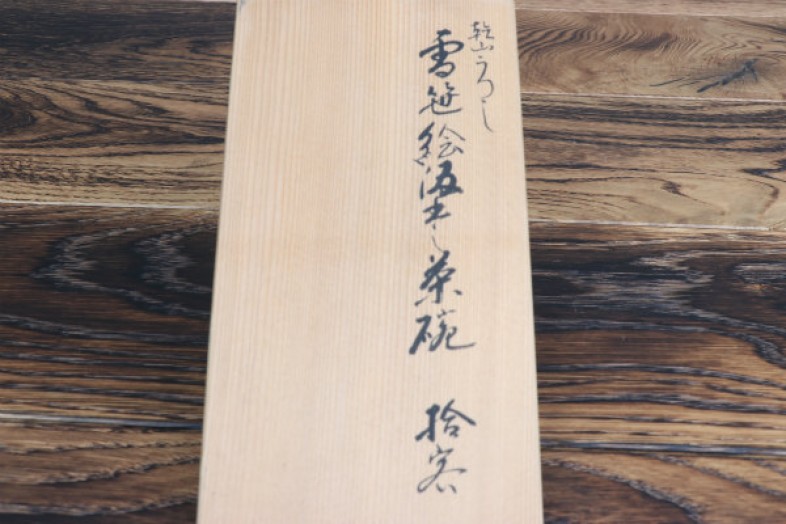 乾山うつし
雪笹絵汲出し茶碗　拾客